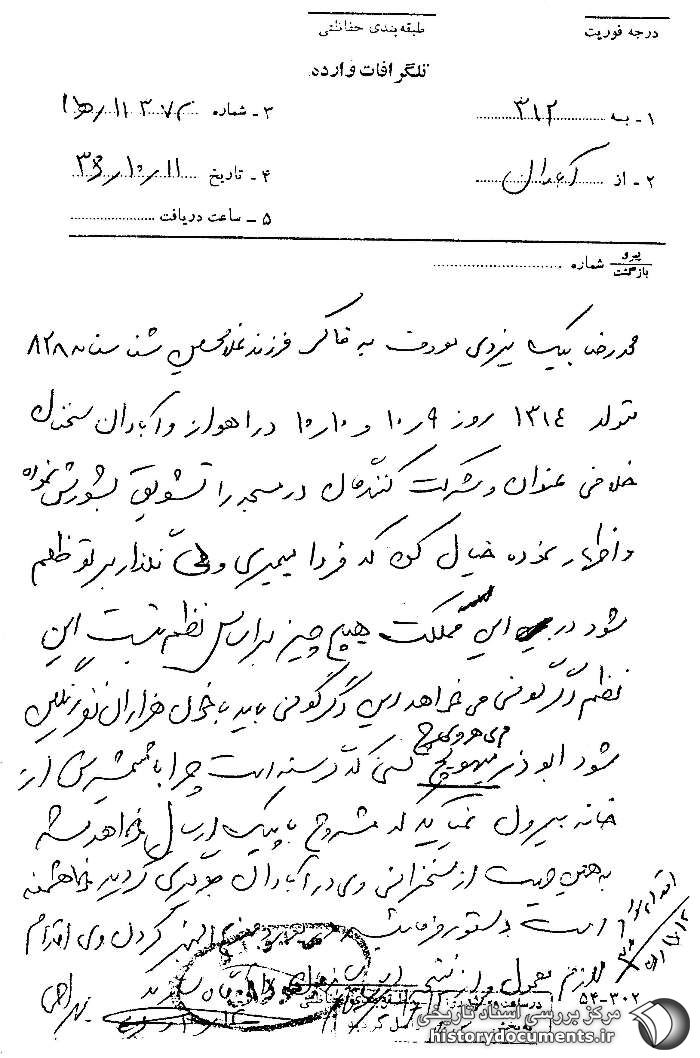 طبقه‌بندی حفاظتی
درجه فوریت
تلگرافات وارده
۱ - به ۳۱۲
۳ - شماره
۲ - از
۴ - تاریخ ۳۶٫۱۰٫۱۱
۵ - ساعت دریافت
پیرو
بازگشت
شماره
محمدرضا یزدی معروف به فاکر فرزند غلامحسین شناسنامه ۸۲۸
متولد ۱۳۱۴ روز ۹ر۱۰ و ۱۰ر۱۰ در اهواز و آبادان سخنان
خلافی عنوان و شرکت کنندگان در مسجد را تشویق بشورش نموده
و اظهار نموده خیال کن که فردا میمیری ولی نگذار بر تو ظلم
شود در این مملکت هیچ چیز بر اساس نظم نیست این
نظم دگرگونی می‌خواهد و این دگرگونی باید با خون هزاران نفر رنگین
شود ابوذر میگوید کسی که گرسنه است چرا با شمشیرش از
خانه بیرون نمیآید که مشروح با پیک ارسال خواهد شد
به همین جهت از سخنرانی وی در آبادان جلوگیری گردید خواهشمند
است دستور فرمائید کردن وی اقدام
لازم معمول و از نتیجه این سازمان را آگاه سازند
۵۴-۳۰۲
مرکز بررسی اسناد تاریخی
historydocuments.ir